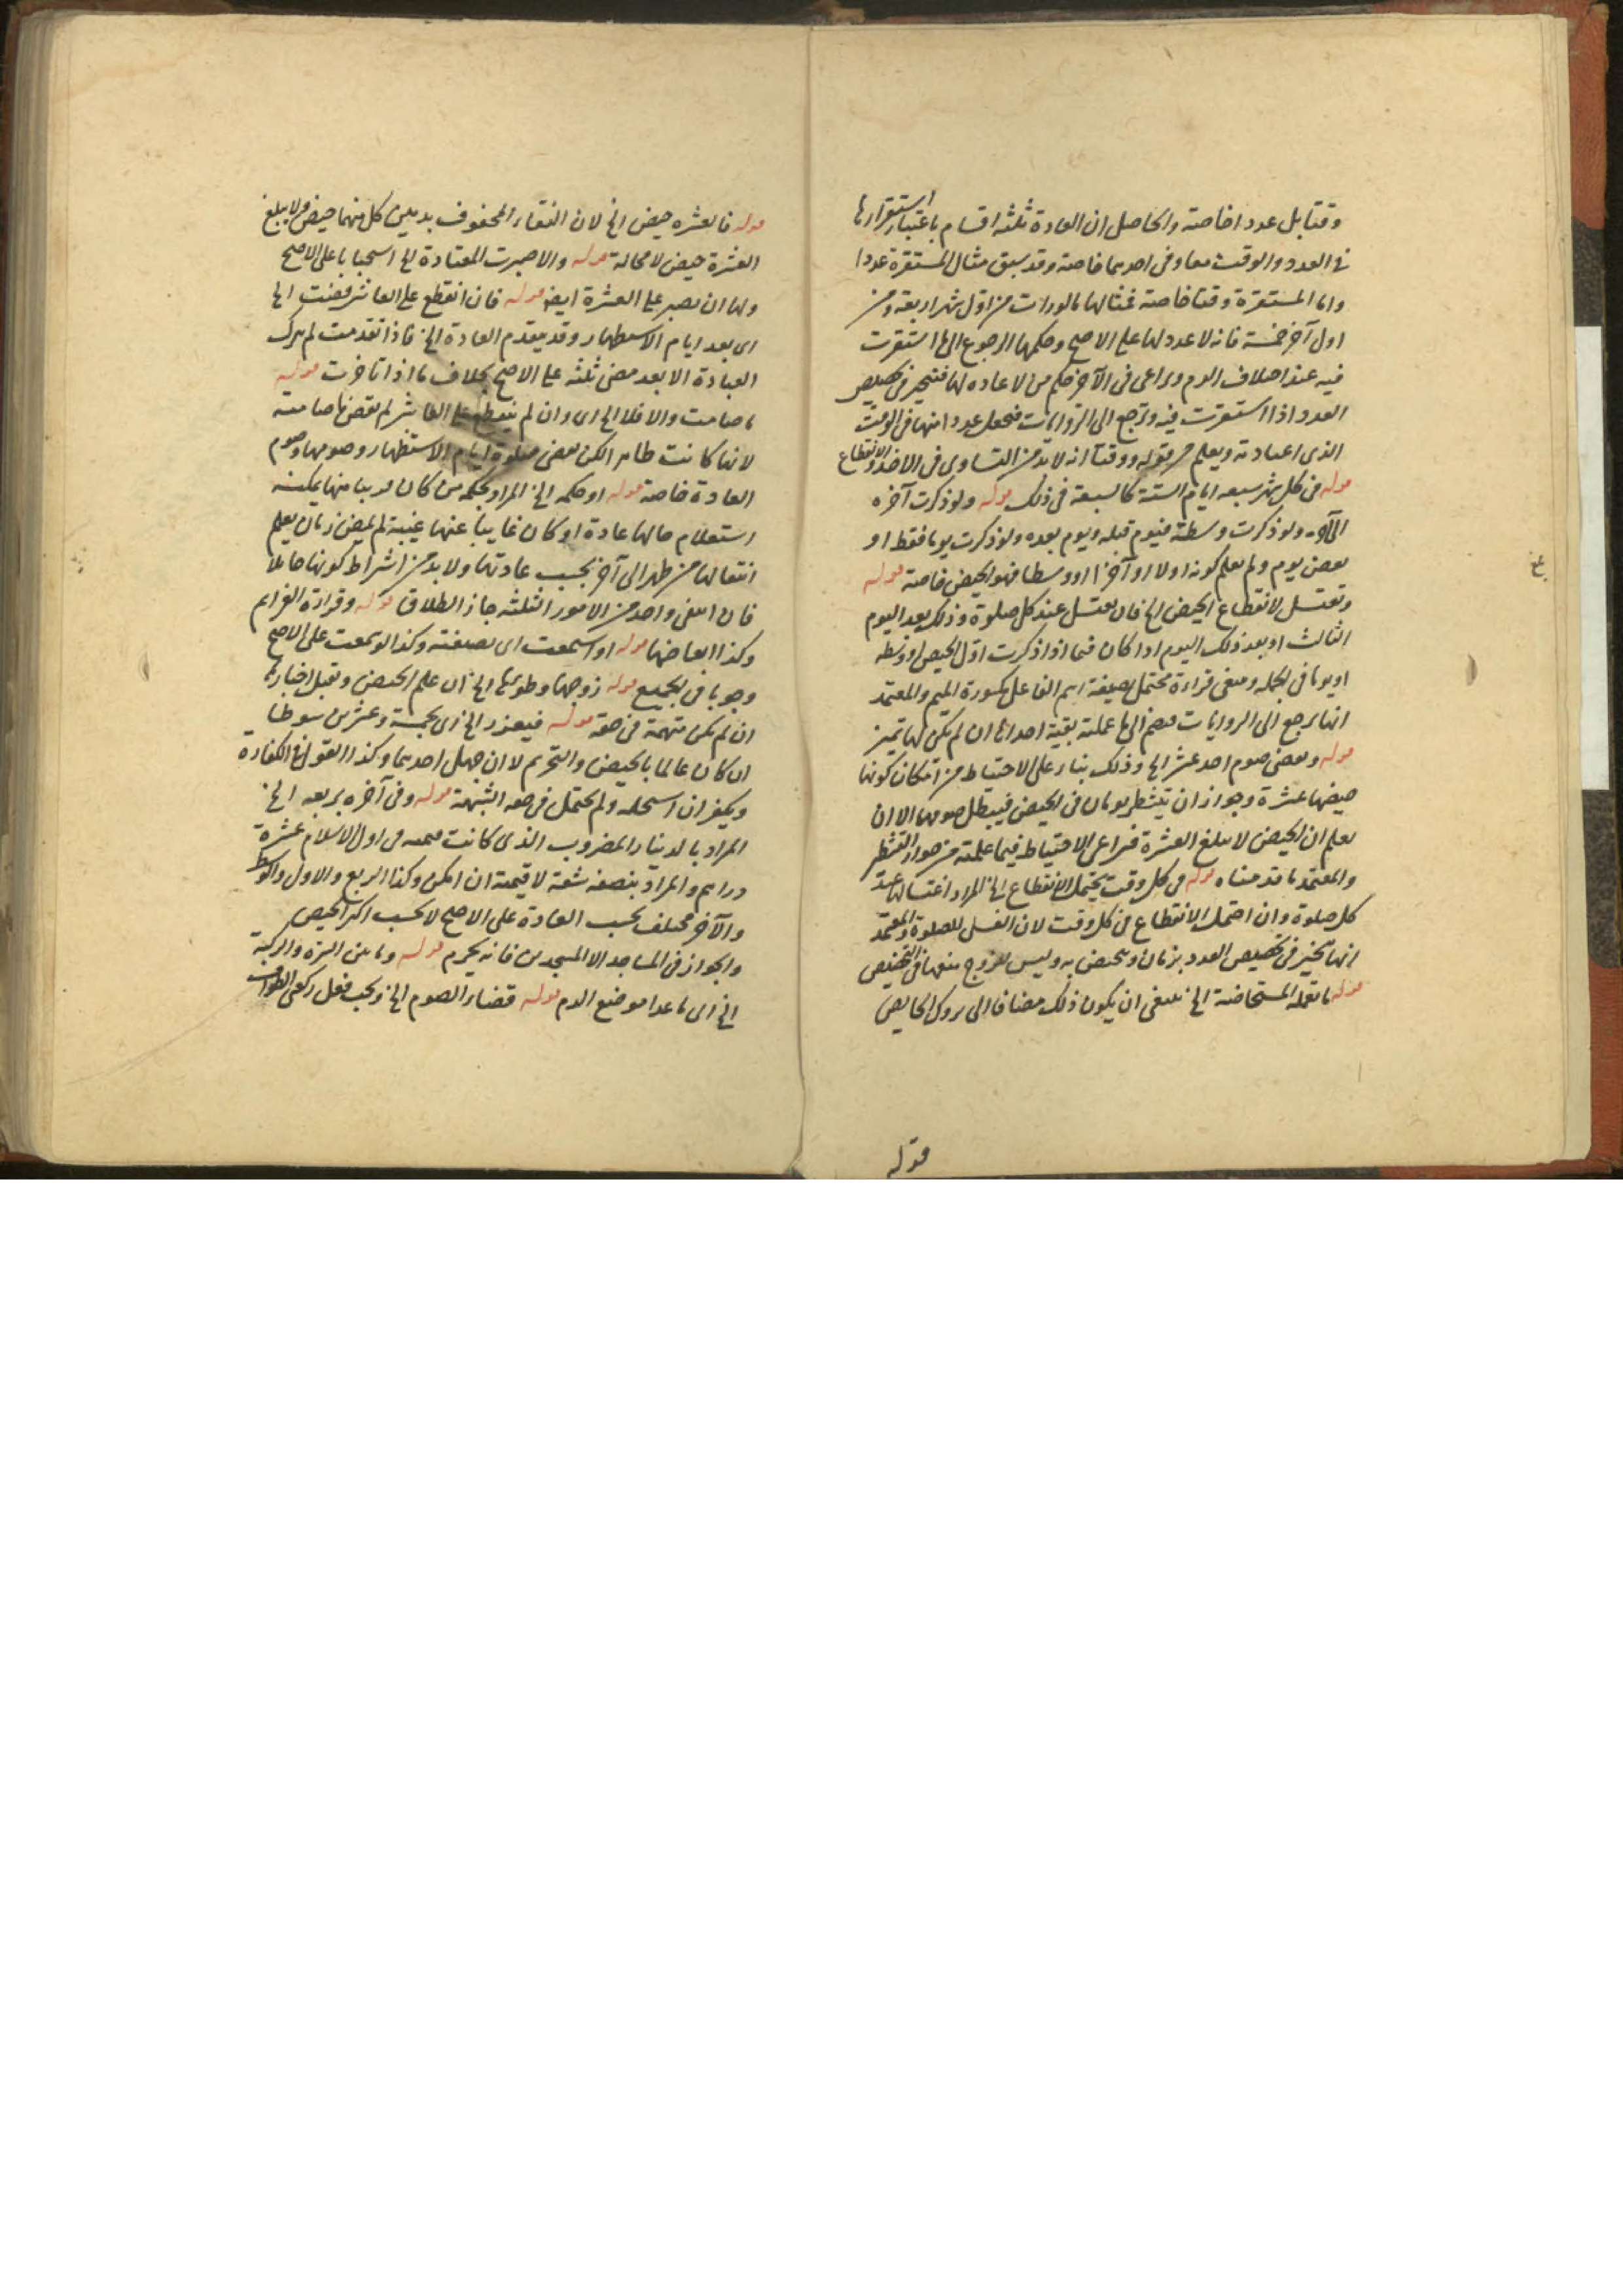 وقتا بل عددا خاصة والحاصل ان العادة ثلثة اقسام باعتبار استقرارها
فى العدد والوقت معا وفى احدهما خاصة وقد سبق مثال المستقرة عددا
واما المستقرة وقتا خاصة فمثالها ما لو رات من اول شهر اربعة ومن
اول آخر خمسة فانه لا عدد لها على الاصح وحكمها الرجوع الى ما استقرت
فيه عند اختلاف الدم ويراعى فى الآخر حكم من لا عاده لها فتتحير فى تخصيص
العدد اذا استقرت فيه وترجع الى الروايات فتجعل عددا منها فى الوقت
الذى اعتادته ويعلم من قوله ووقتا انه لا بد من التساوى فى الاخذ والانقطاع
قوله فى كل شهر سبعه ايام الستة كالسبعة فى ذلك قوله ولو ذكرت آخره
الى آه ولو ذكرت وسطه فيوم قبله ويوم بعده ولو ذكرت يوما فقط او
بعض يوم ولم يعلم كونه اولا او آخرا او وسطا فهو الحيض خاصة قوله
وتغتسل لانقطاع الحيض الخ فان تغتسل عند كل صلوة وذلك بعد اليوم
الثالث او بعد ذلك اليوم اذا كان فيما اذا ذكرت اول الحيض او وسطه
او يوما فى الجمله وينبغى قراءة محتمل بصيغة اسم الفاعل مكسورة الميم والمعتمد
انها ترجع الى الروايات فتضم الى ما علمته بقية احداها ان لم تكن لها تميز
قوله وتقضى صوم احد عشر الخ وذلك بناء على الاحتياط من امكان كونها
حيضها عشرة وجواز ان يتشطر يومان فى الحيض فيبطل صومهما الا ان
يعلم ان الحيض لا يبلغ العشرة فيراعى الاحتياط فيما علمته من جواز التشطر
والمعتمد ما قدمناه قوله فى كل وقت يحتمل الانقطاع الخ المراد اغتسالها عند
كل صلوة وان احتمل الانقطاع فى كل وقت لان الغسل للصلوة والمعتمد
انها تتخير فى تخصيص العدد بزمان وتتحيض به وليس للزوج منعها فى التخصيص
قوله ما تفعله المستحاضة الخ ينبغى ان يكون ذلك مضافا الى تروك الحايض
قوله
قوله فالعشره حيض الخ لان النقاء المحفوف بدمين كل منهما حيض ولا يبلغ
العشرة حيض لا محالة قوله والا صبرت المعتادة الخ استحبابا على الاصح
ولها ان تصبر على العشرة ايضا قوله فان انقطع على العاشر قضت الخ
اى بعد ايام الاستظهار وقد يتقدم العادة الخ فاذا تقدمت لم تترك
العبادة الا بعد مضى ثلثه على الاصح بخلاف ما اذا تاخرت قوله
ما صامت والا فلا الخ اى وان لم ينقطع على العاشر لم تقض ما صامته
لانها كانت طاهرا لكن تقضى صلوة ايام الاستظهار وصومها وصوم
العادة خاصة قوله او حكمه الخ المراد بحكمه من كان قريبا منها يمكنه
استعلام حالها عادة او كان غايبا عنها غيبة لم يمض زمان يعلم
انتقالها من طهر الى آخر بحسب عادتها ولا بد من اشتراط كونها حائلا
فان انتفى واحد من الامور الثلثه جاز الطلاق قوله وقراءة العزايم
وكذا ابعاضها قوله او استمعت اى بصيغته وكذا لو سمعت على الاصح
وجوبا فى الجميع قوله زوجها وطوئها الخ ان علم الحيض وتقبل اخبارها
ان لم تكن متهمة فى حقه قوله فيعزر الخ اى بخمسة وعشرين سوطا
ان كان عالما بالحيض والتحريم لا ان جهل احدهما وكذا القول فى الكفارة
ويكفر ان استحله ولم يحتمل فى حقه الشبهة قوله وفى آخره بربعه الخ
المراد بالدينار المضروب الذى كانت قيمته فى اول الاسلام عشرة
دراهم والمراد بنصفه شقه لا قيمته ان امكن وكذا الربع والاول والوسط
والآخر مختلف بحسب العادة على الاصح لا بحسب اكثر الحيض
والجواز فى المساجد الا المسجدين فانه يحرم قوله وما بين السرة والركبة
الخ اى ما عدا موضع الدم قوله قضاء الصوم الخ ويجب فعل ركعتى الطواف